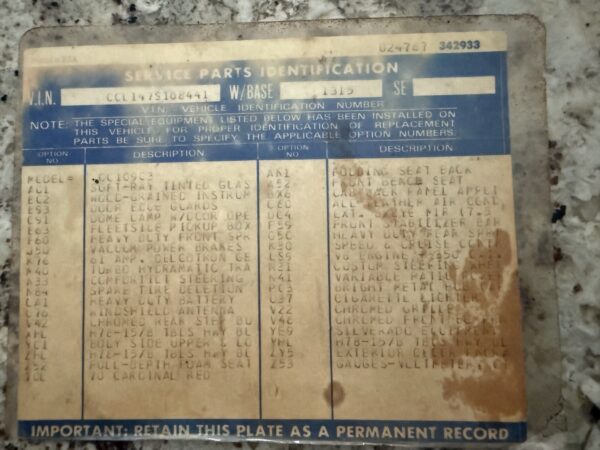 024767 342933
SERVICE PARTS IDENTIFICATION
V.I.N. W/BASE 1315 SE
V.I.N. VEHICLE IDENTIFICATION NUMBER
NOTE: THE SPECIAL EQUIPMENT LISTED BELOW HAS BEEN INSTALLED ON
THIS VEHICLE. FOR PROPER IDENTIFICATION OF REPLACEMENT
PARTS BE SURE TO SPECIFY THE APPLICABLE OPTION NUMBERS.
OPTION NO DESCRIPTION OPTION NO DESCRIPTION
MODEL=
AO1 SOFT-RAY TINTED GLAS
WOOD-GRAINED INSTRUP
B93 DOOR EDGE GUARDS
C91 DOME LAMP W/DOOR OPE
E63 FLEETSIDE PICKUP BOX
F60 HEAVY DUTY FRONT SPR
J50 VACUUM POWER BRAKES
K76 61 AMP. DELCOTRON GE
M40 TURBO HYDRAMATIC TRA
N33 COMFORTILT STEERING
P13 SPARE TIRE
UA1 HEAVY DUTY BATTERY
U76 WINDSHIELD ANTENNA
V42 CHROMED REAR STEP BU
XHL H78-15/B TBLS HWY BL
YC1 BODY SIDE UPPER
ZHL H78-15/B TBLS HWY BL
Z52 FULL-DEPTH FOAM SEAT
70L 70 CARDINAL RED
AN1 FOLDING SEAT BACK
A52 FRONT BENCH SEAT
BX6 CAB BACK PANEL APPLI
C60 ALL-WEATHER AIR COND
DG4 EXT.
F59 FRONT STABILIZER BAR
G50 HEAVY DUTY REAR SPR
K30 SPEED & CRUISE CONT
LS9 V8 ENGINE
N31 CUSTOM STEERING WHEE
N41 VARIABLE RATIO
PO3 BRIGHT METAL
U37 CIGARETTE LIGHTER
V22 CHROMED GRILLE
V46 CHROMED FRONT
YE9 SILVERADO EQUIPMENT
YHL H78-15/B TBLS HWY BL
ZY5 EXTERIOR
Z53 GAUGES-VOLTMETER
IMPORTANT: RETAIN THIS PLATE AS A PERMANENT RECORD